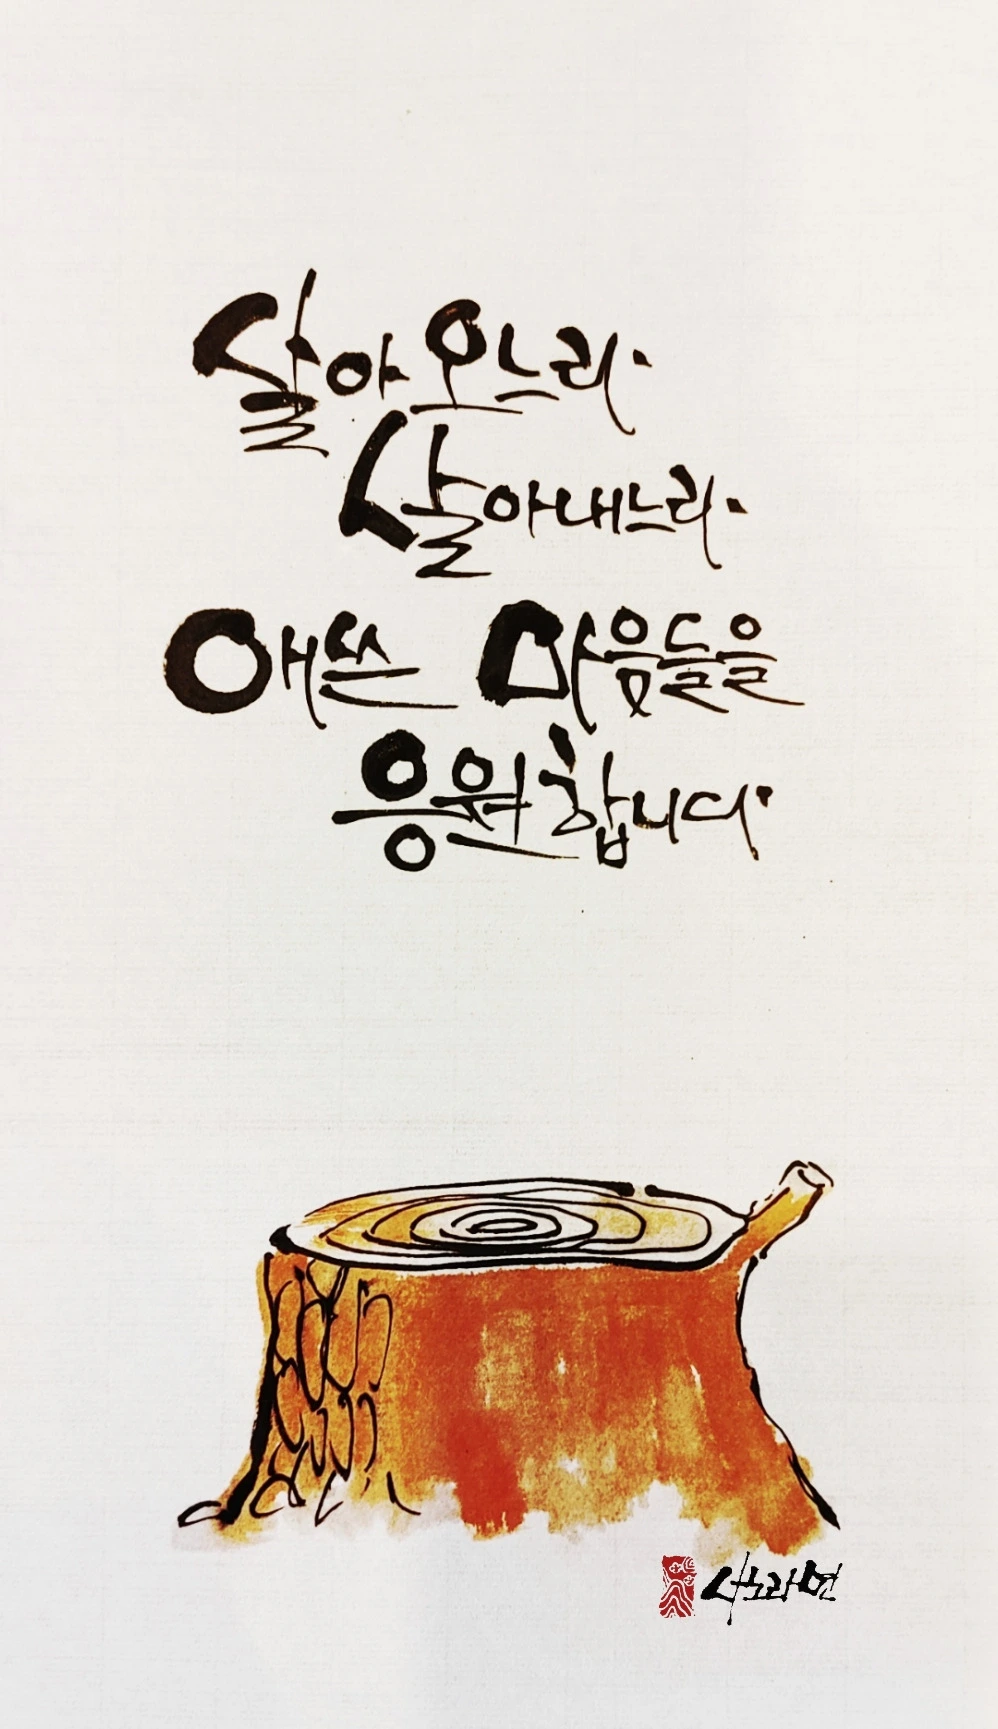 살아오느라.
살아내느라.
애쓴 마음들을
응원합니다.